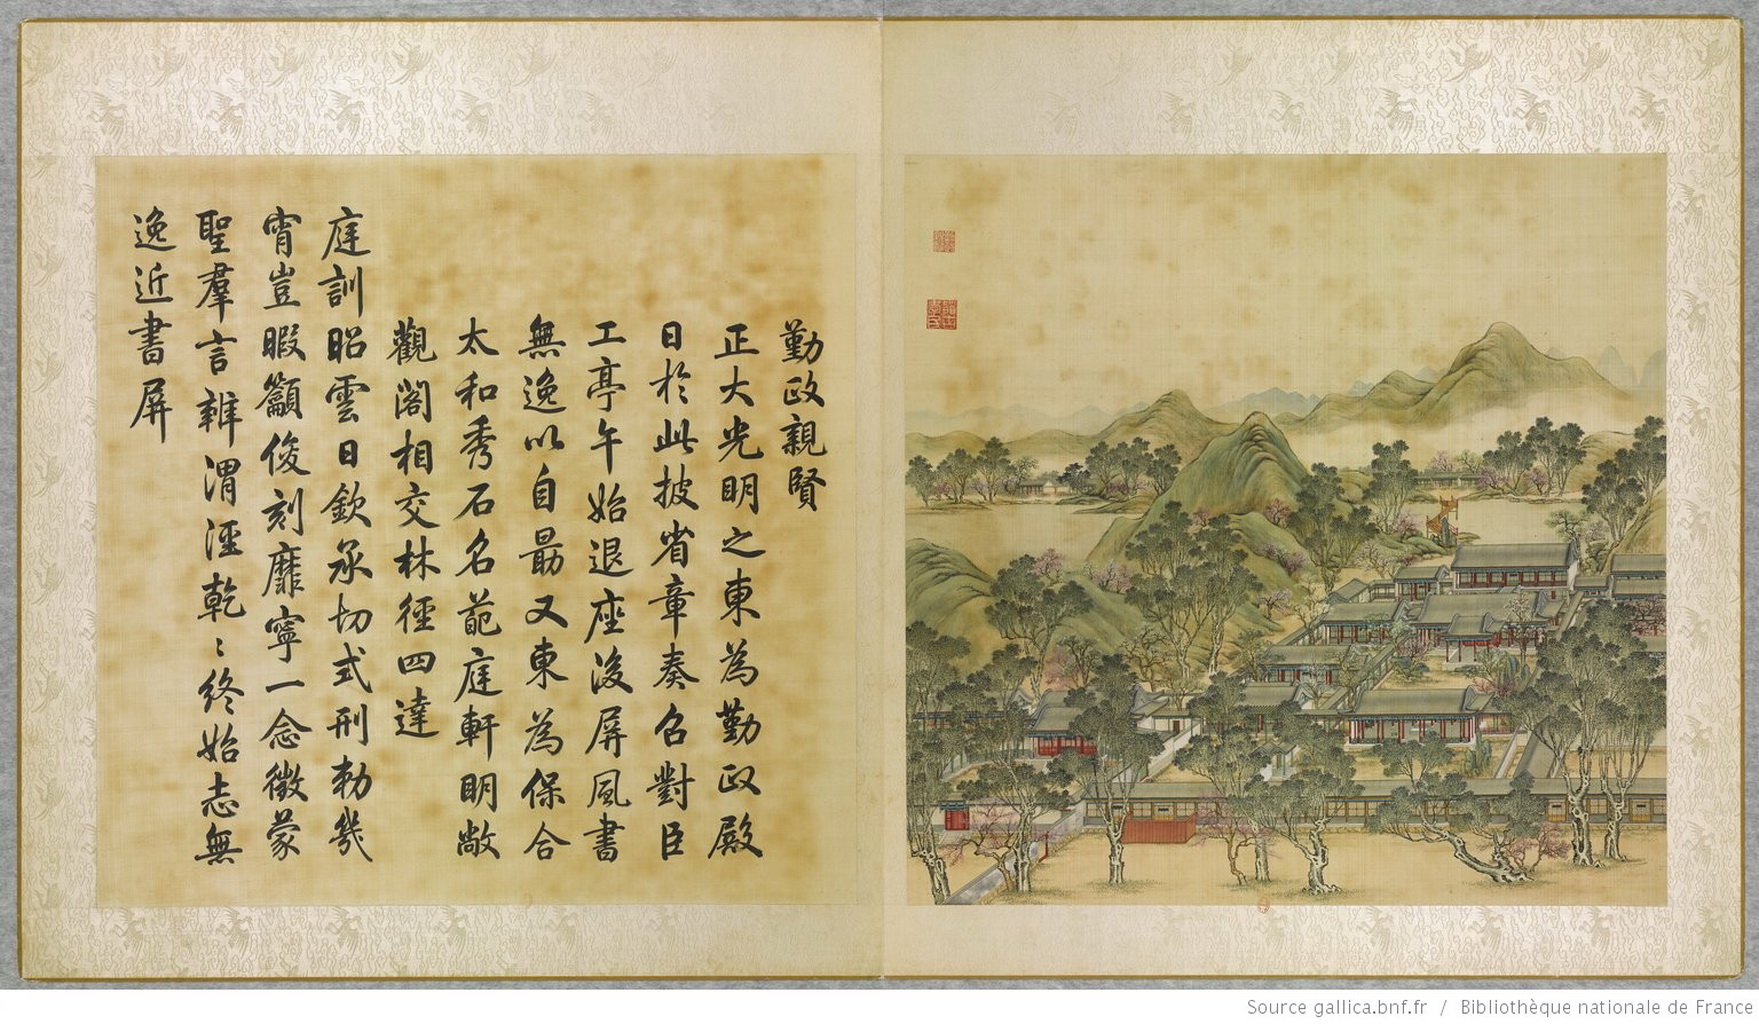 勤政親賢
正大光明之東為勤政殿
日於此披省章奏召對臣
工亭午始退座後屏風書
無逸以自勗又東為保合
太和秀石名葩庭軒明敞
觀閣相交林徑四達
庭訓昭雲日欽承切式刑勅幾
宵豈暇籲俊刻靡寧一念徵蒙
聖羣言辨渭涇乾〻終始志無
逸近書屏
Source gallica.bnf.fr / Bibliothèque nationale de France